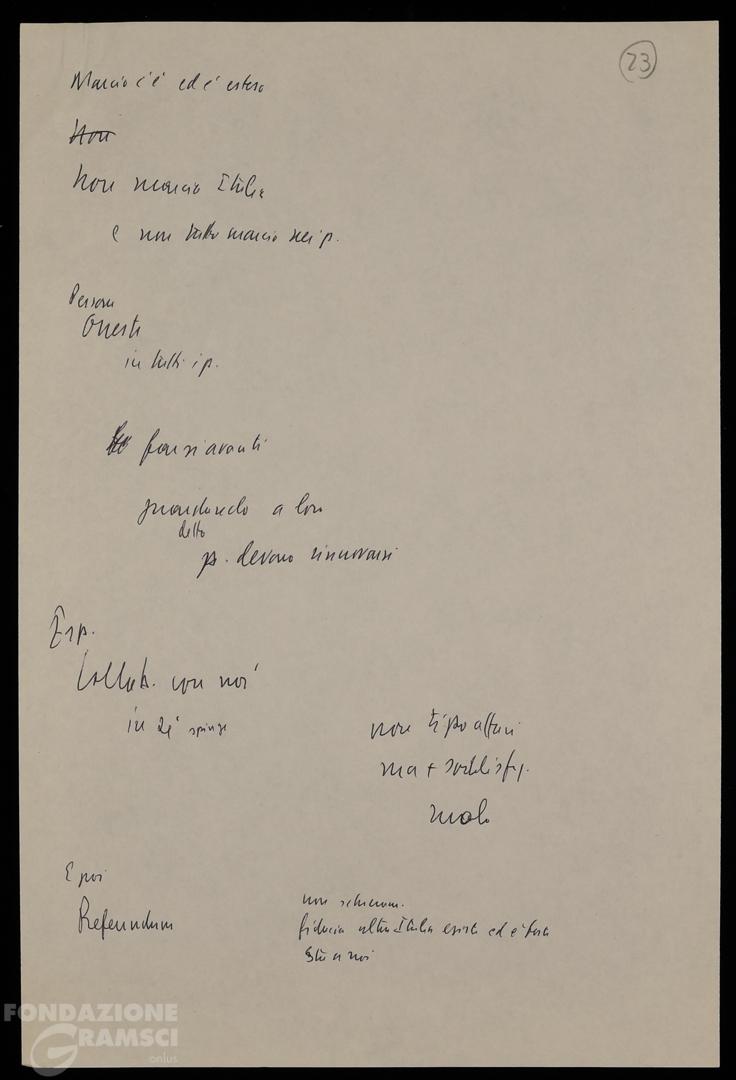 23
Marcio c'è ed è esteso
Non
Non marcio Italia
e non tutto marcio nei p.
Persone
Oneste
in tutti i p.
farsi avanti
guardando a loro
detto
p. devono rinnovarsi
Esp.
Collab. con noi
in sé spinge
non tipo affari
ma + soddisfaz.
molo
E poi
Referendum
non schieram.
fiducia altra Italia esiste ed è forte
Sta a noi
FONDAZIONE
GRAMSCI
onlus